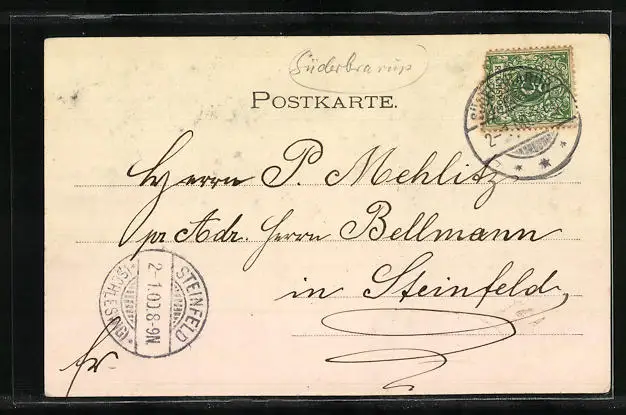 Süderbrarup
POSTKARTE.
Herrn P. Mehlitz
pr Adr. Herrn Bellmann
in Steinfeld,
STEINFELD
2.1.00.8-9N.
(SCHLESWIG)
fr.